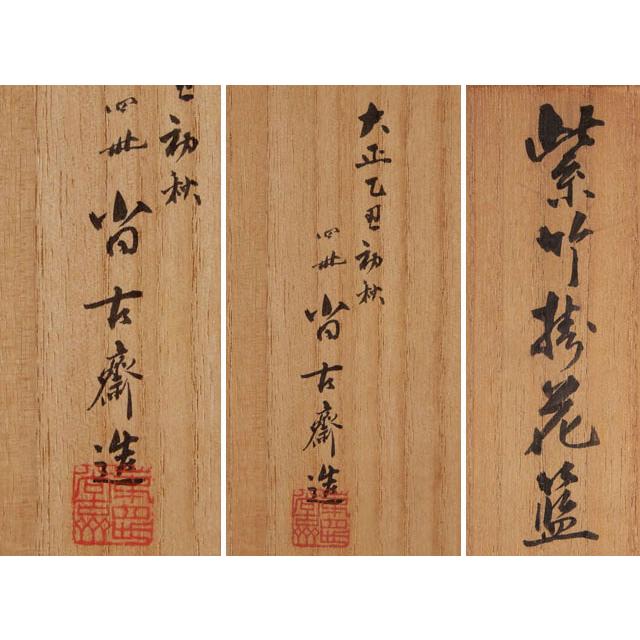 丑初秋
四世
尚古齋造
大正乙丑初秋
四世
尚古齋造
紫竹掛花籃